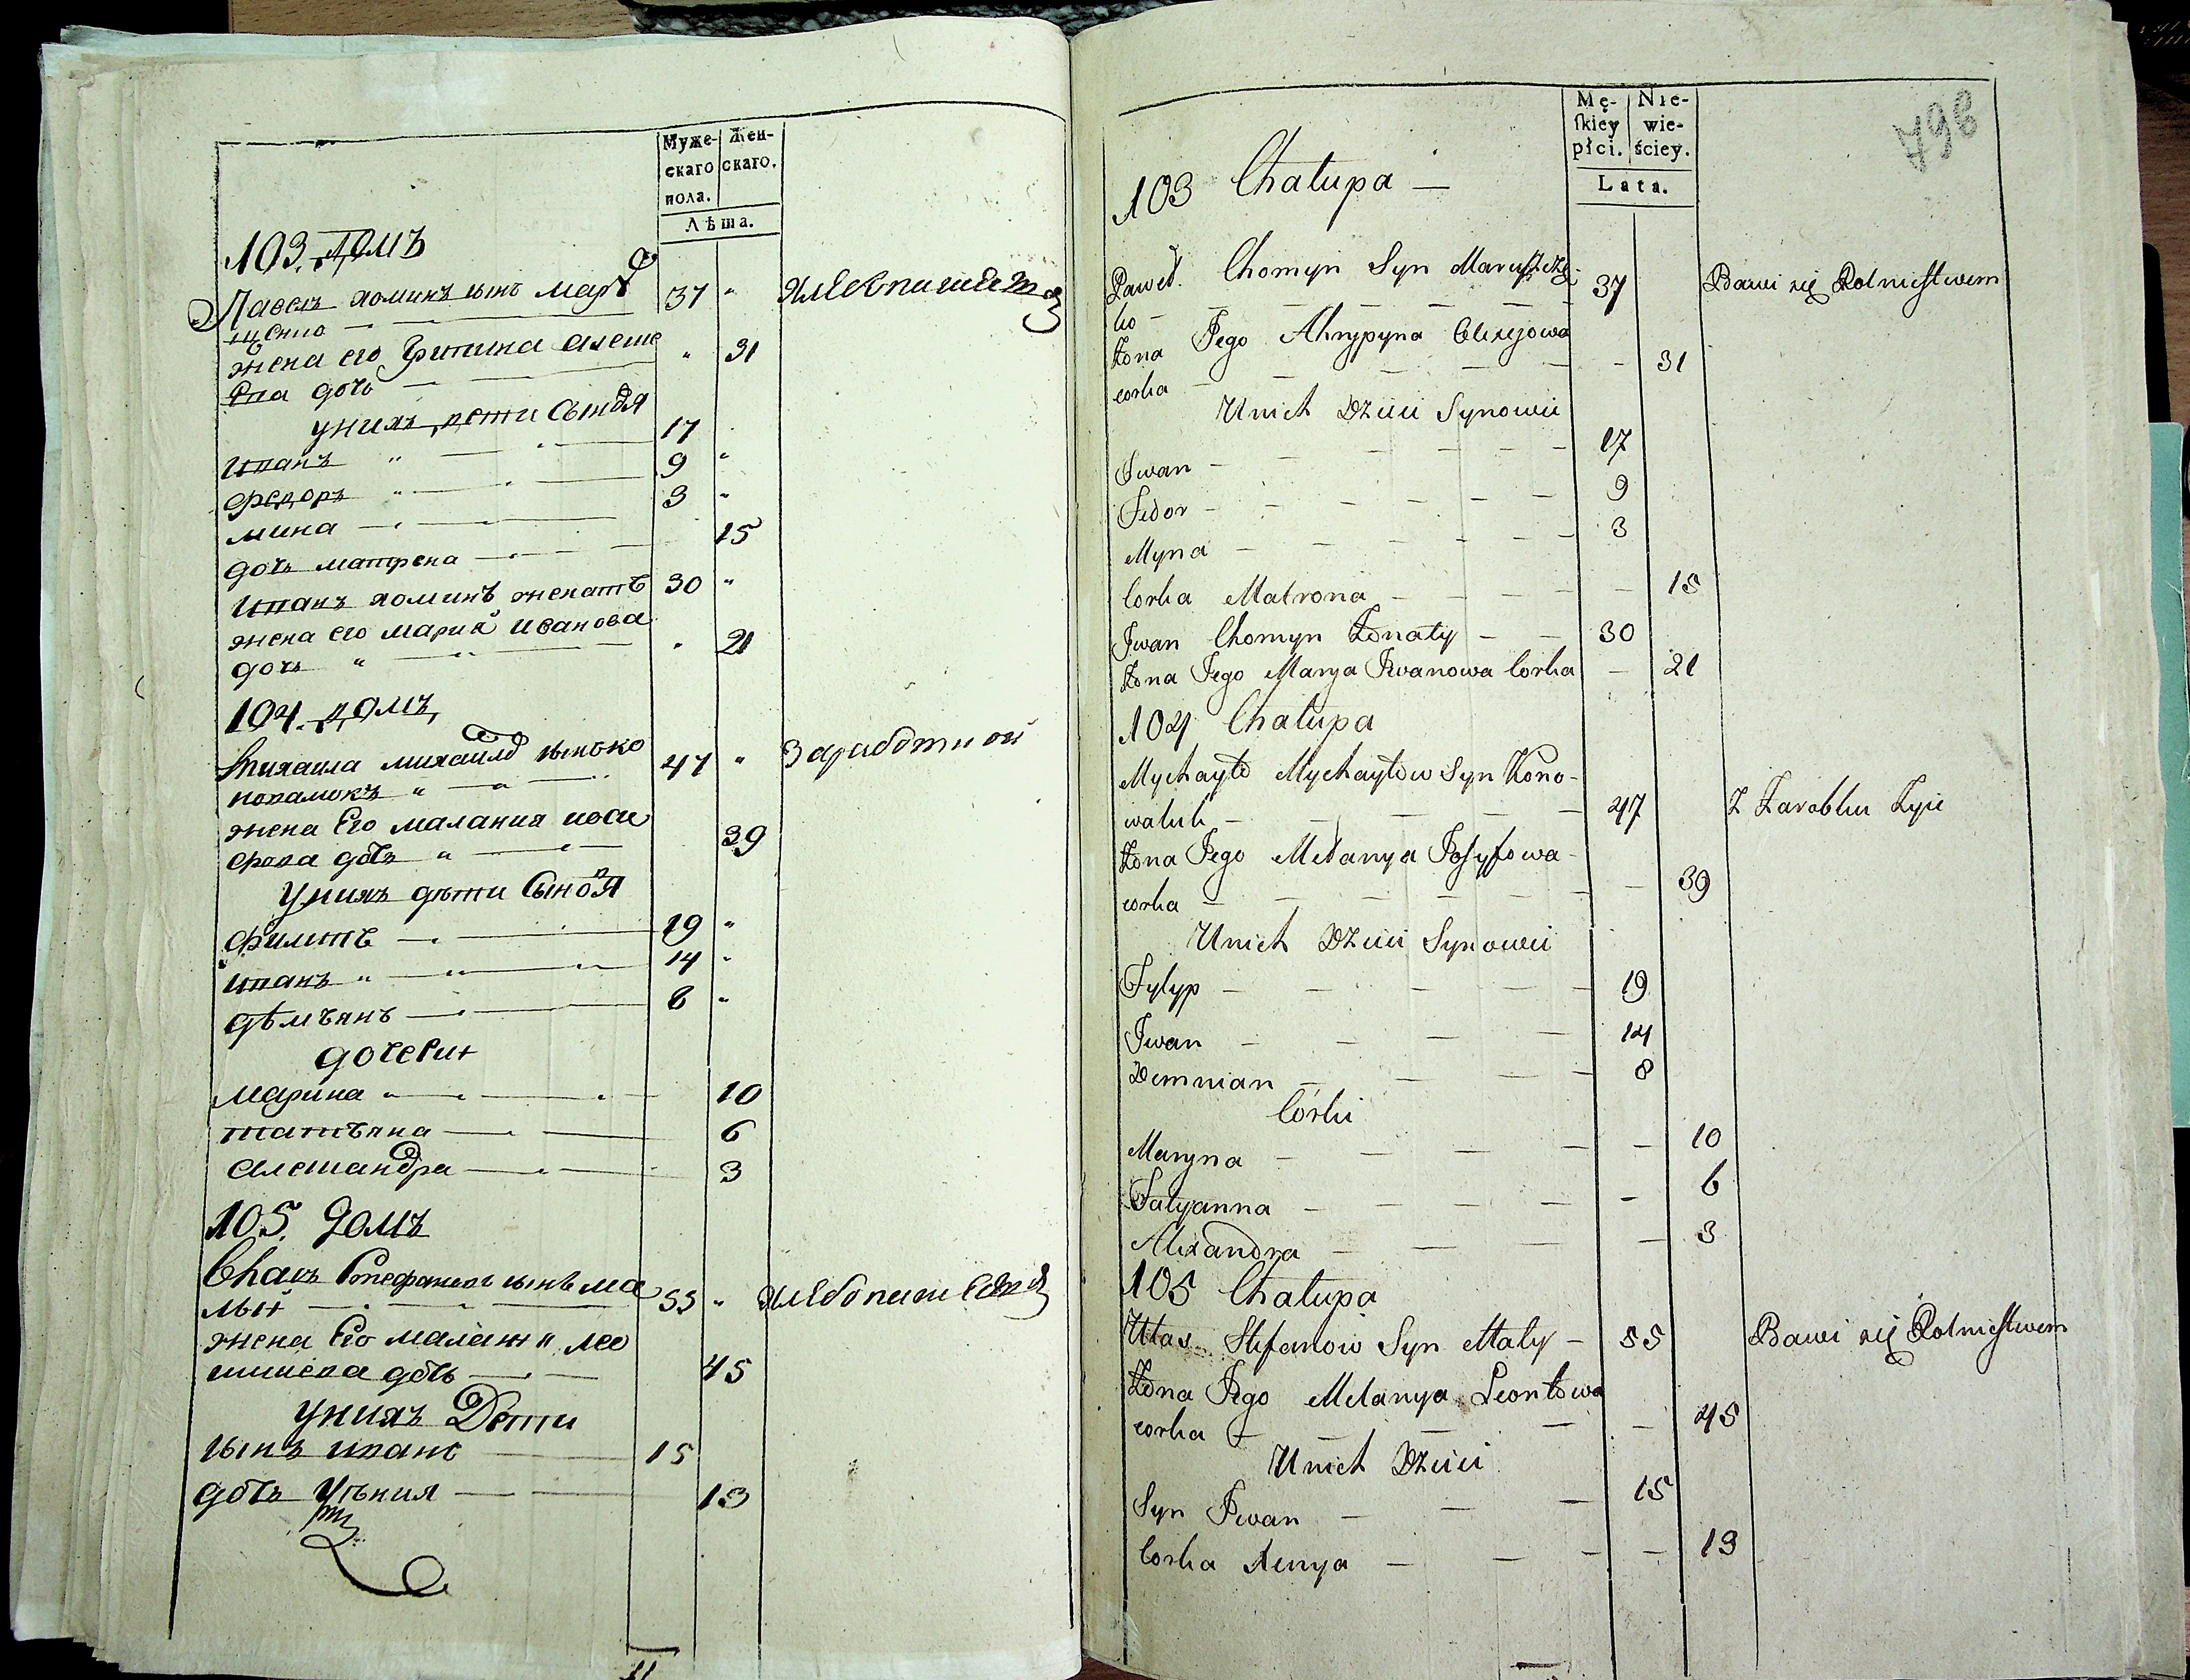 Муже-
скаго
пола.
Жен-
скаго.
Лѣта.
103. домъ
Павелъ хоминъ сынъ мару
щенко 37 "
жена его Грипина алеше
ва дочь " 31
унихъ дети сыновя
иванъ " 17
федоръ " 9 "
мина 3 "
дочь матрена 15
иванъ хоминъ женатъ 30 "
жена его мария иванова
дочь " 21
104. домъ
михаила михаилов сынъ ко
новалюкъ " 47 " Заработкой
жена Его малания иоси
фова дочь " 39
унихъ дѣти Сыновя
филипъ 19 "
иванъ " 14 "
дѣмъянъ 8 "
дочери
марина 10
татьяна 6
алешандра 3
105. домъ
Стефановъ сынъ ма
лый 55 "
жена Его малания лео
дочь 45
унихъ Дети
сынъ иванъ 15
дочь 13
Mę-
skiey
płci.
Nie-
wie-
ściey.
Lata.
798
103 Chalupa —
Paweł Chomyn Syn Maruszcze-
ko — 37 Bawi się Rolnictwem
Żona Jego Ahrypyna Olexejowa
corka — — 31
Unich Dzieci Synowie
Iwan — 17
Fedor — 9
Myna — 3
Corka Matrona — — 15
Iwan Chomyn Żonaty — 30
Żona Jego Marya Iwanowa Corka — 21
104 Chalupa
Mychayło Mychayłow Syn Kono-
waluk — 47 Z Zarobku Żyie
Żona Jego Mełanya Josyfowa
corka — — 39
Unich Dzieci Synowie
Fylyp — 19
Iwan — 14
Demnian — 8
Córki
Maryna — — 10
Tatyanna — — 6
Alexandra — — 3
105 Chalupa
Ułas Stefanow Syn Mały — 55 Bawi się Rolnictwem
Żona Jego Mełanya Leontowa
corka — — 45
Unich Dzieci
Syn Iwan — 15
Corka Xenya — — 13